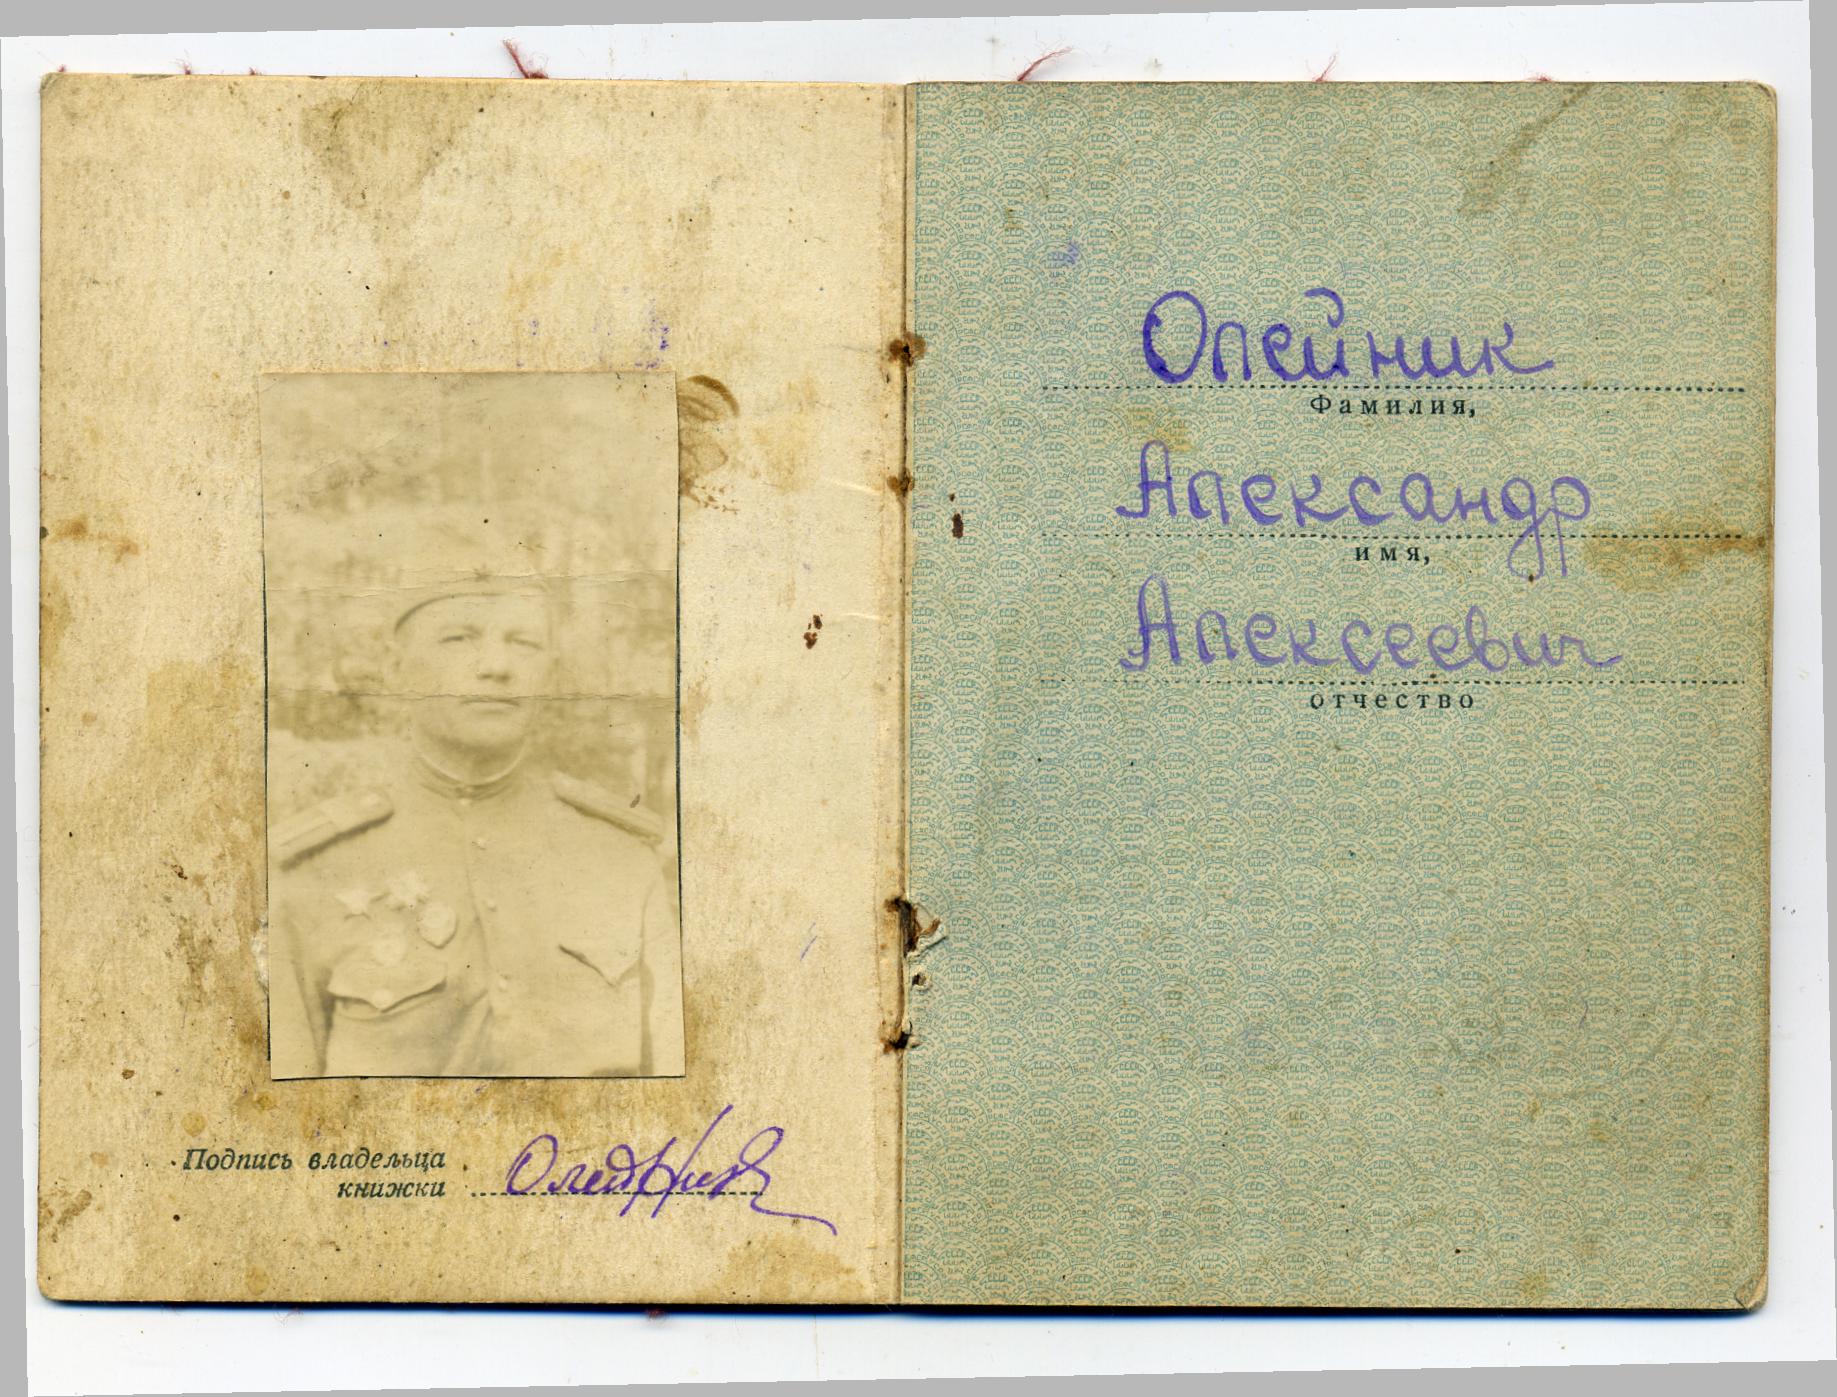 Подпись владельца
книжки Олейник
Олейник
Фамилия,
Александр
имя,
Алексеевич
отчество